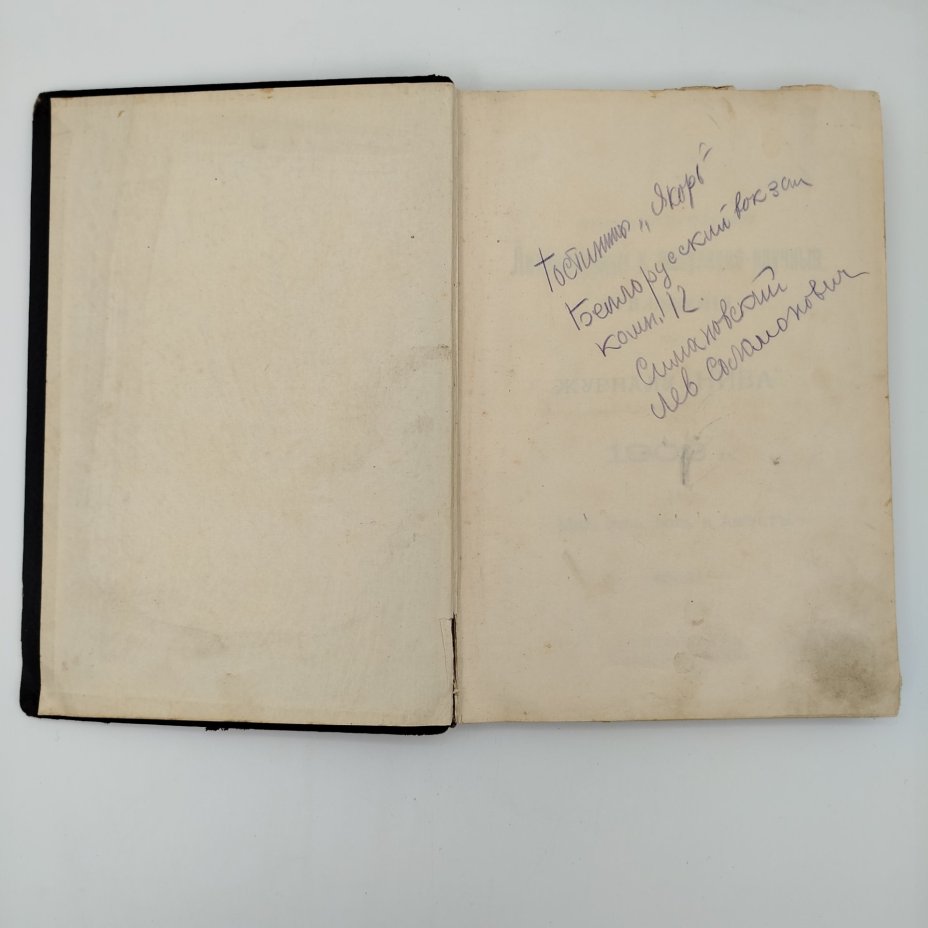 Гостиница „Якорь"
Белорусский вокзал
комн. 12.
Симановский
Лев Соломонович